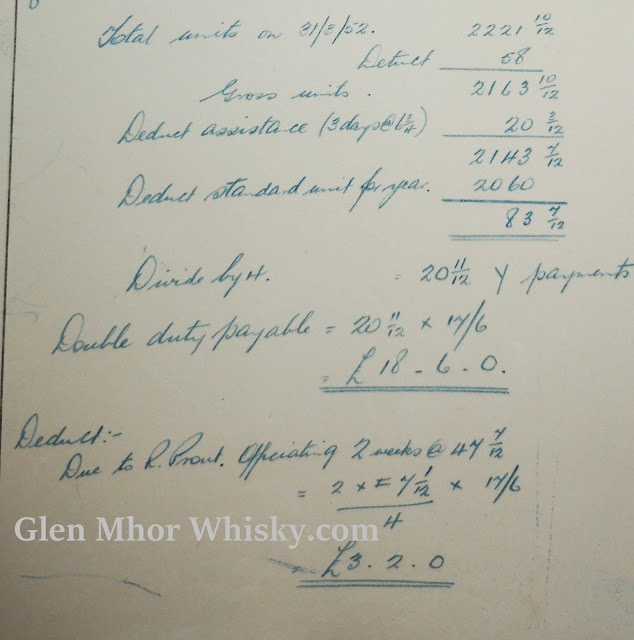 Total units on 31/3/52. 2221 10/12
Deduct 58
Gross units. 2163 10/12
Deduct assistance (3 days @ 6 3/4) 20 3/12
2143 7/12
Deduct standard unit for year. 2060
83 7/12
Divide by 4. = 20 11/12 Y payments
Double duty payable = 20 11/12 × 17/6
= £18-6-0.
Deduct:-
Due to R. Prout. Officiating 2 weeks @ 47 7/12
= 2 × 7 1/12 × 17/6
4
= £3.2.0
Glen Mhor Whisky.com